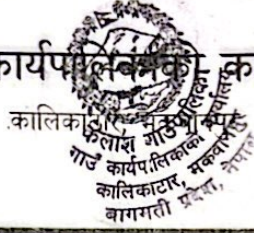 कार्यपालिकाको
कालिकाटार
कैलाश गाउँपालिका
गाउँ कार्यपालिकाको कार्यालय
कालिकाटार, मकवानपुर
बागमती प्रदेश, नेपाल